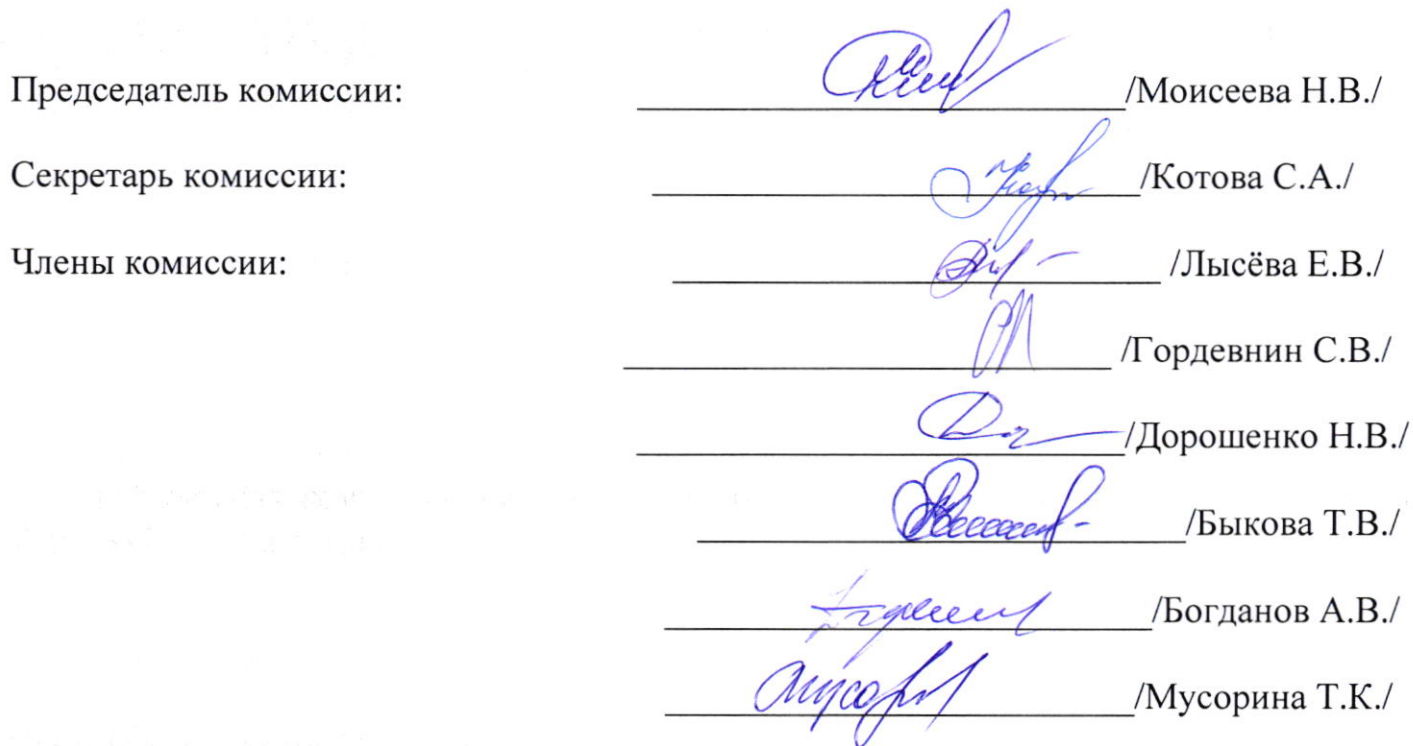 Председатель комиссии: /Моисеева Н.В./
Секретарь комиссии: /Котова С.А./
Члены комиссии: /Лысёва Е.В./
/Гордевнин С.В./
/Дорошенко Н.В./
/Быкова Т.В./
/Богданов А.В./
/Мусорина Т.К./